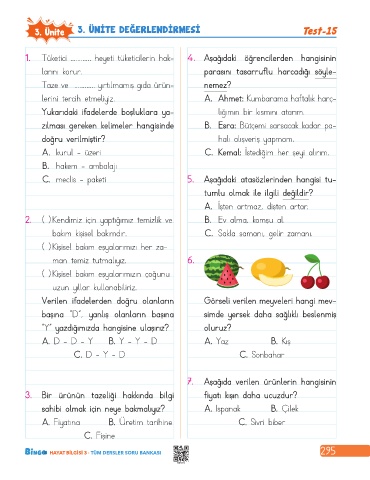 3. Ünite
3. ÜNİTE DEĞERLENDİRMESİ
Test-15
1. Tüketici ........... heyeti tüketicilerin hak-
larını korur.
Taze ve ........... yırtılmamış gıda ürün-
lerini tercih etmeliyiz.
Yukarıdaki ifadelerde boşluklara ya-
zılması gereken kelimeler hangisinde
doğru verilmiştir?
A. kurul - üzeri
B. hakem - ambalajı
C. meclis - paketi
2. ( ) Kendimiz için yaptığımız temizlik ve
bakım kişisel bakımdır.
( ) Kişisel bakım eşyalarımızı her za-
man temiz tutmalıyız.
( ) Kişisel bakım eşyalarımızın çoğunu
uzun yıllar kullanabiliriz.
Verilen ifadelerden doğru olanların
başına "D", yanlış olanların başına
"Y" yazdığımızda hangisine ulaşırız?
A. D - D - Y B. Y - Y - D
C. D - Y - D
3. Bir ürünün tazeliği hakkında bilgi
sahibi olmak için neye bakmalıyız?
A. Fiyatına B. Üretim tarihine
C. Fişine
4. Aşağıdaki öğrencilerden hangisinin
parasını tasarruflu harcadığı söyle-
nemez?
A. Ahmet: Kumbarama haftalık harç-
lığımın bir kısmını atarım.
B. Esra: Bütçemi sarsacak kadar pa-
halı alışveriş yapmam.
C. Kemal: İstediğim her şeyi alırım.
5. Aşağıdaki atasözlerinden hangisi tu-
tumlu olmak ile ilgili değildir?
A. İşten artmaz, dişten artar.
B. Ev alma, komşu al.
C. Sakla samanı, gelir zamanı.
6.
Görseli verilen meyveleri hangi mev-
simde yersek daha sağlıklı beslenmiş
oluruz?
A. Yaz B. Kış
C. Sonbahar
7. Aşağıda verilen ürünlerin hangisinin
fiyatı kışın daha ucuzdur?
A. Ispanak B. Çilek
C. Sivri biber
BiNGO HAYAT BİLGİSİ 3 - TÜM DERSLER SORU BANKASI
295